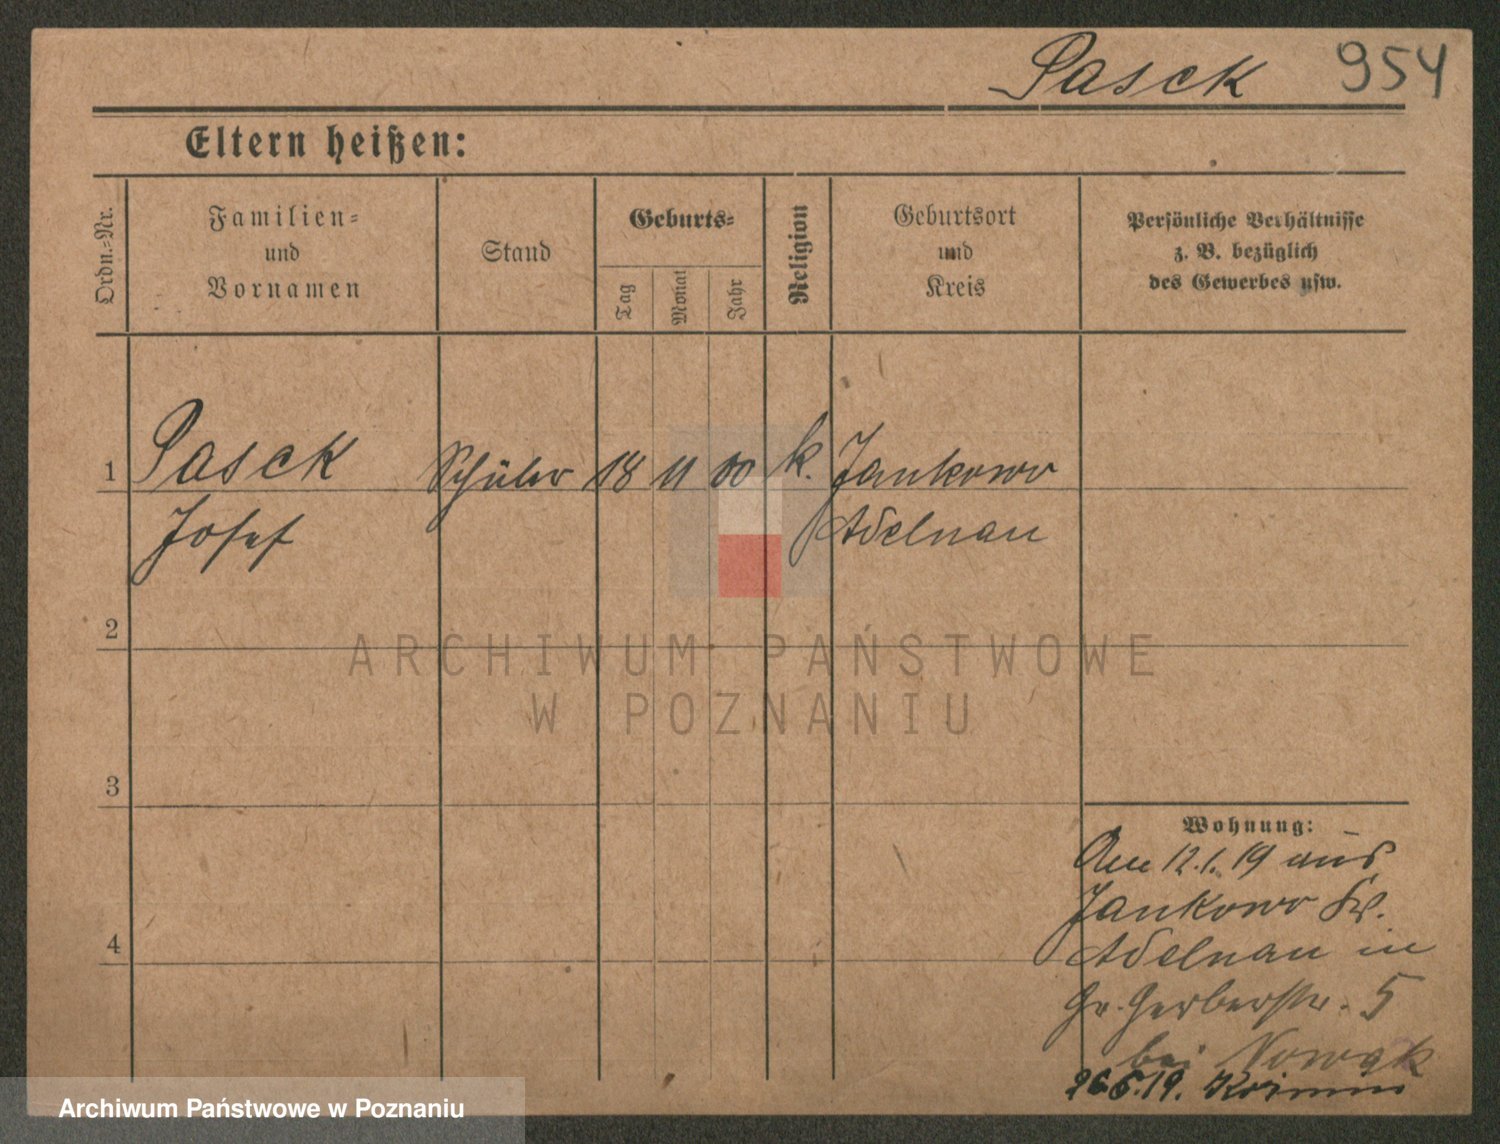 Pasck 954
Eltern heißen:
Ordn.=Nr.
Familien=
und
Vornamen
Stand
Geburts=
Tag
Monat
Jahr
Religion
Geburtsort
und
Kreis
Persönliche Verhältnisse
z. B. bezüglich
des Gewerbes usw.
1 Pasck Schüler 18 11 00 k. Jankowo
Josef Adelnau
2
3
4
Wohnung:
Am 12.1.19 aus
Jankowo Kr.
Adelnau in
Gr. Gerberstr. 5
bei Nowak
26.5.19.
ARCHIWUM PAŃSTWOWE
W POZNANIU
Archiwum Państwowe w Poznaniu